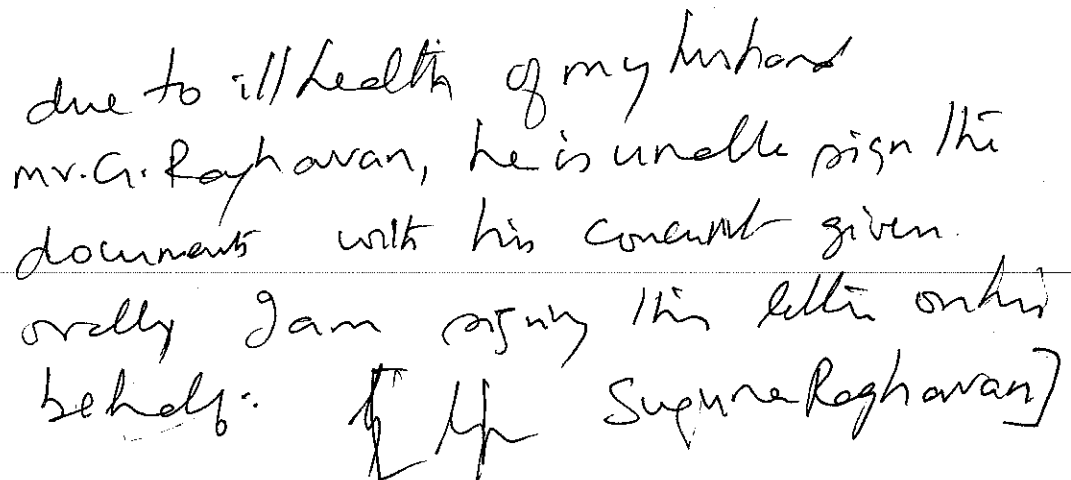 due to ill health of my husband
mr. G. Raghavan, he is unable sign the
documents with his concent given.
orally I am signing this letter on his
behalf. Suguna Raghavan]